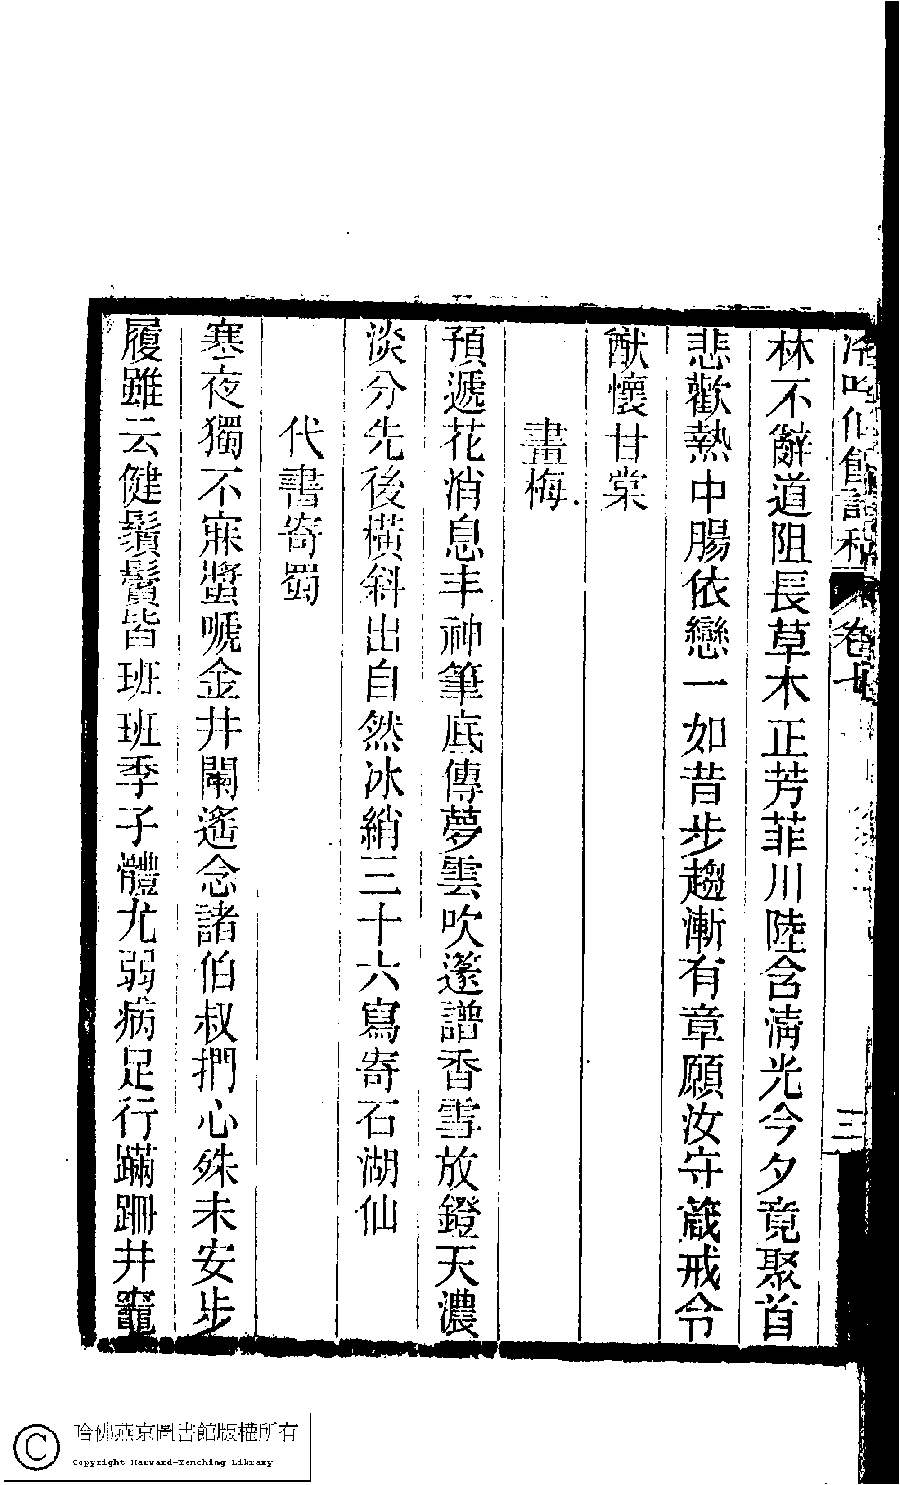 林不辭道阻長草木正芳菲川陸含淸光今夕竟聚首
悲歡熱中腸依戀一如昔步趨漸有章願汝守葴戒令
猷懷甘棠
畫梅
預遞花消息丰神筆底傳夢雲吹遂譜香雪放鐙天濃
淡分先後橫斜出自然冰綃三十六寫寄石湖仙
代書寄蜀
寒夜獨不寐螿嗁金井闌遙念諸伯叔捫心殊未安步
履雖云健鬚鬢皆班班季子體尤弱病足行蹣跚井竈
卷十
三
哈佛燕京圖書館版權所有
Copyright Harvard-Yenching Library